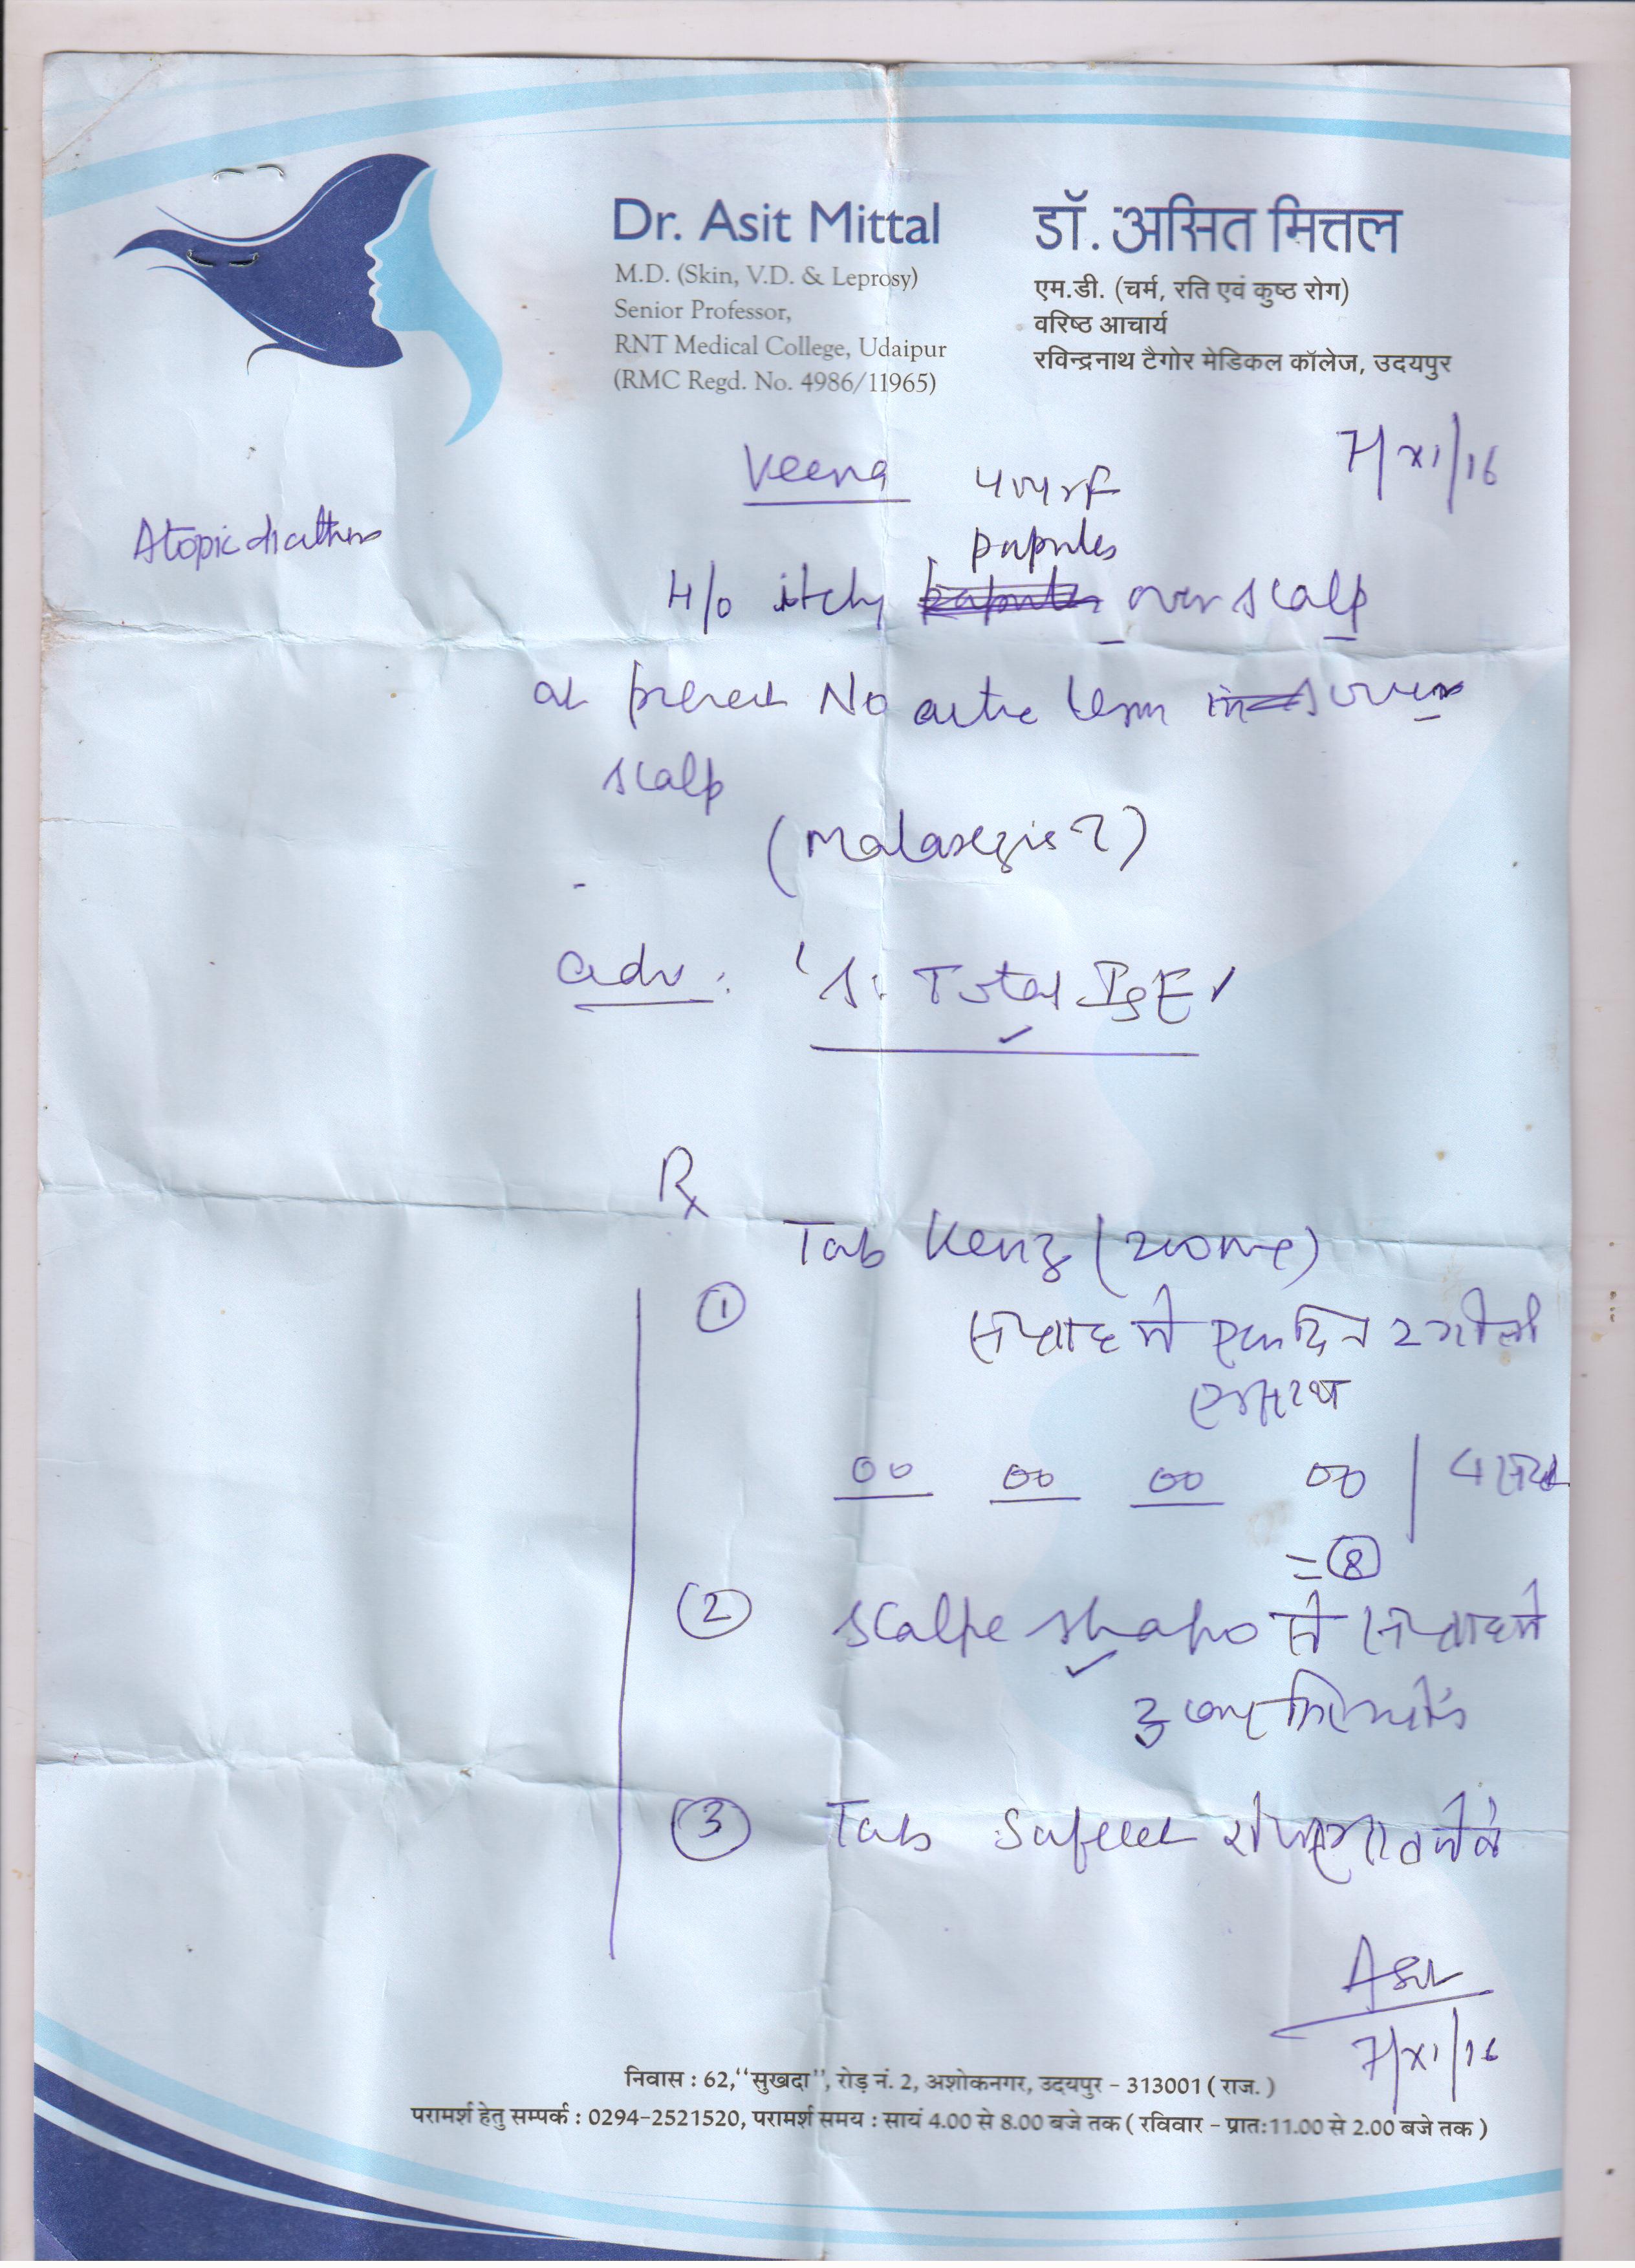 Dr. Asit Mittal
M.D. (Skin, V.D. & Leprosy)
Senior Professor,
RNT Medical College, Udaipur
(RMC Regd. No. 4986/11965)
डॉ. असित मित्तल
एम.डी. (चर्म, रति एवं कुष्ठ रोग)
वरिष्ठ आचार्य
रविन्द्रनाथ टैगोर मेडिकल कॉलेज, उदयपुर
7/XI/16
Veena
Atopic
papules
H/o itchy over scalp
at present No active lesion over
scalp
adv: S. Total IgE
Rx
Tab Kenz (200mg)
① सप्ताह में एक दिन 2 गोली
एकसाथ
00 00 00 00
= ⑧
② Scalpe से सप्ताह में
3
③ Tab
7/XI/16
निवास : 62,''सुखदा'', रोड़ नं. 2, अशोकनगर, उदयपुर - 313001 ( राज. )
परामर्श हेतु सम्पर्क : 0294-2521520, परामर्श समय : सायं 4.00 से 8.00 बजे तक ( रविवार - प्रात:11.00 से 2.00 बजे तक )